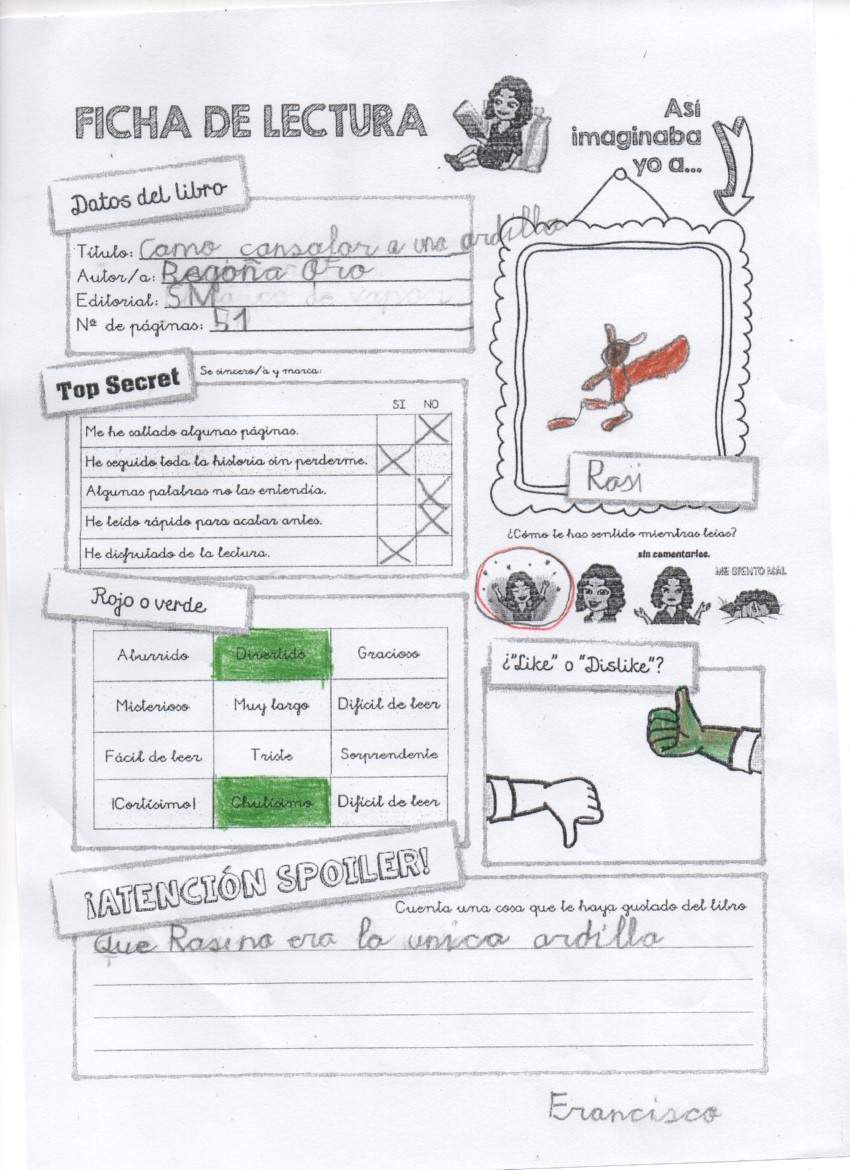 FICHA DE LECTURA
Así
imaginaba
yo a...
Datos del libro
Título: Como cansolar a una ardilla
Autor/a: Begoña Oro
Editorial: SM
Nº de páginas: 51
Top Secret
Se sincero/a y marca:
SI NO
Me he saltado algunas páginas.
He seguido toda la historia sin perderme.
Algunas palabras no las entendía.
He leído rápido para acabar antes.
He disfrutado de la lectura.
Rasi
¿Cómo te has sentido mientras leías?
sin comentarios.
ME SIENTO MAL
Rojo o verde
Aburrido Divertido Gracioso
Misterioso Muy largo Difícil de leer
Fácil de leer Triste Sorprendente
¡Cortísimo! Chulísimo Difícil de leer
¿"Like" o "Dislike"?
¡ATENCIÓN SPOILER!
Cuenta una cosa que te haya gustado del libro
que Rasi no era la unica ardilla
Francisco